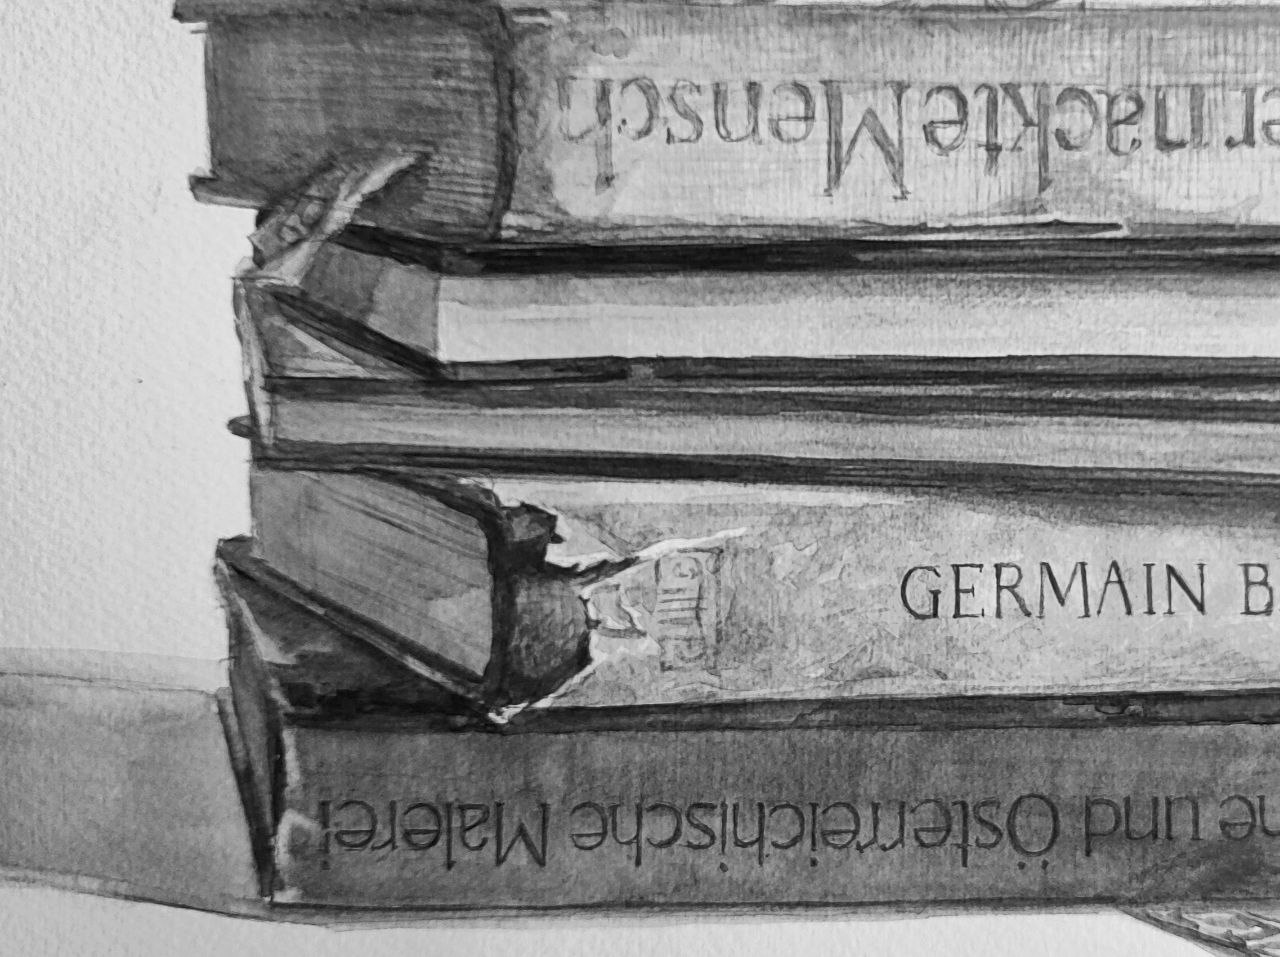 ernackte Mensch
GERMAIN B
he und Österreichische Malerei